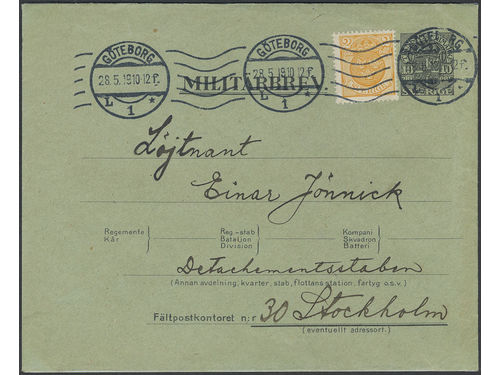 GÖTEBORG GÖTEBORG GÖTEBORG
28.5.1910.12 F. 28.5.1910.12 F.
MILITÄRBREV
L 1 L 1 1
Löjtnant
Einar Jönnick
Regemente Reg.-stab Kompani
Kår Bataljon Skvadron
Division Batteri
Detachementsstaben
(Annan avdelning, kvarter, stab, flottans station, fartyg o.s.v.)
Fältpostkontoret n:r 30 Stockholm
(eventuellt adressort.)